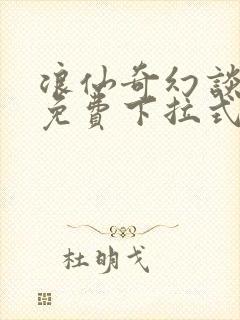 浪仙奇幻談
免費下拉式
杜明戈